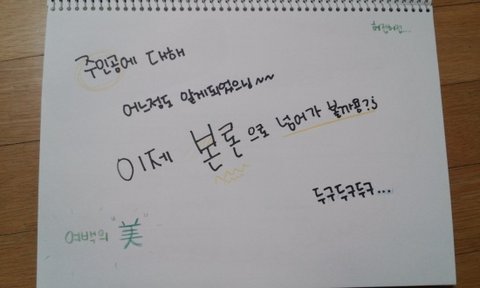 주인공에 대해
어느정도 알게되었으닝~~
이제 본론으로 넘어가 볼까용?!
두구두구두구...
여백의 "美"